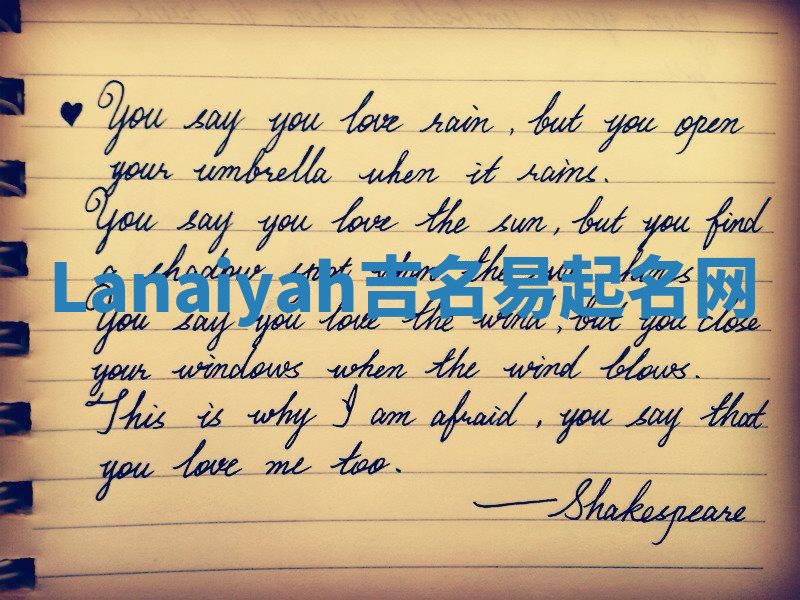 ♥ You say you love rain, but you open
your umbrella when it rains.
You say you love the sun, but you find
a shadow spot when the sun shines
Lanaiyah吉名易起名网
You say you love the wind, but you close
your windows when the wind blows.
This is why I am afraid, you say that
you love me too.
—Shakespeare